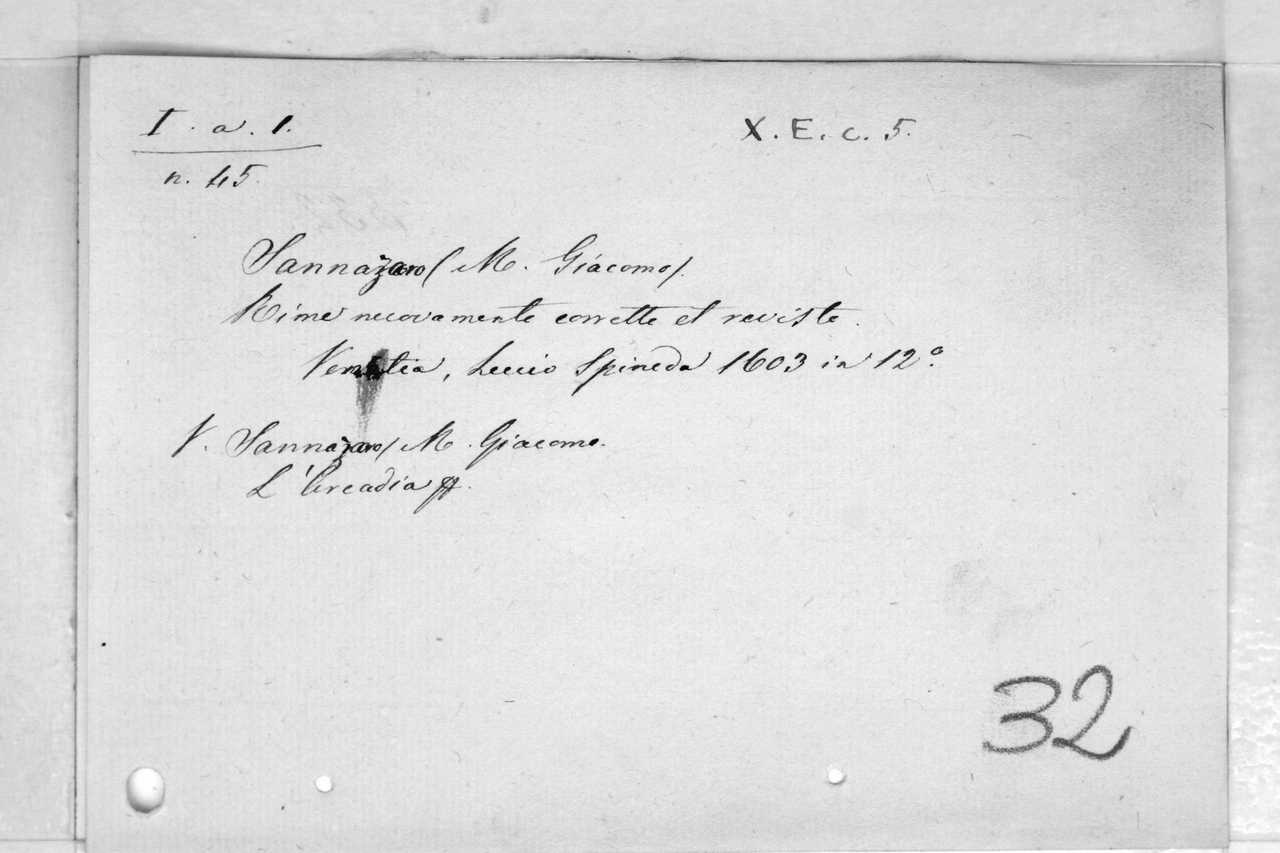 I. a. 1.
n. 45.
X. E. c. 5.
Sannazaro (M. Giacomo).
Rime nuovamente corrette et reviste.
Venetia, Lucio Spineda 1603 in 12.°
V. Sannazaro, M. Giacomo.
L'Arcadia
32